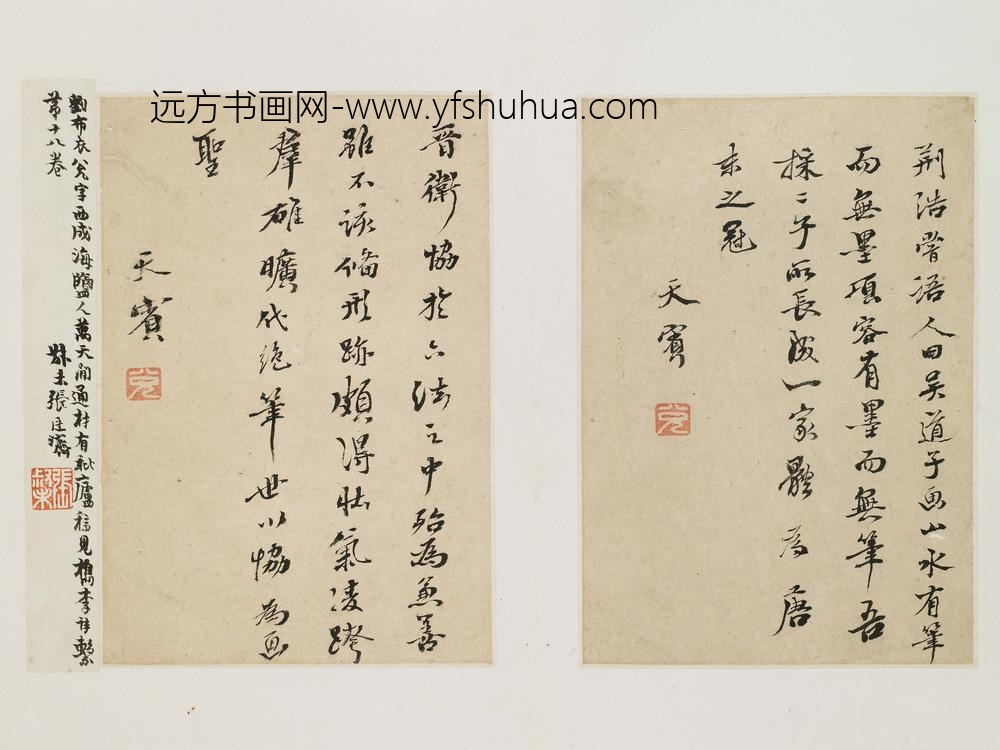 远方书画网-www.yfshuhua.com
荆浩嘗語人曰吴道子畫山水有筆
而無墨項容有墨而無筆吾
採二子所長成一家體為唐
末之冠
天賓
晋衛協於六法之中殆為兼善
雖不該備形跡頗得壯氣凌跨
羣雄曠代絶筆世以協為畫
聖
天賓
劉布衣兊字西成海鹽人萬天間通材有恥廬稿見檇李詩繫
第十八卷